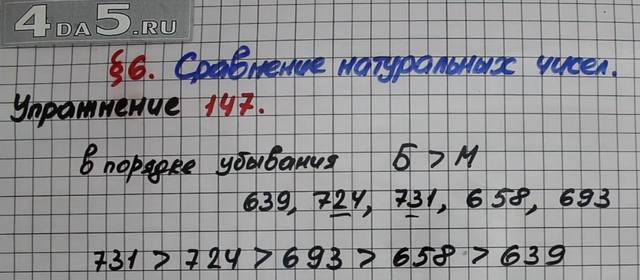 4DA5.RU
§6. Сравнение натуральных чисел.
Упражнение 147.
в порядке убывания Б > М
639, 724, 731, 658, 693
731 > 724 > 693 > 658 > 639